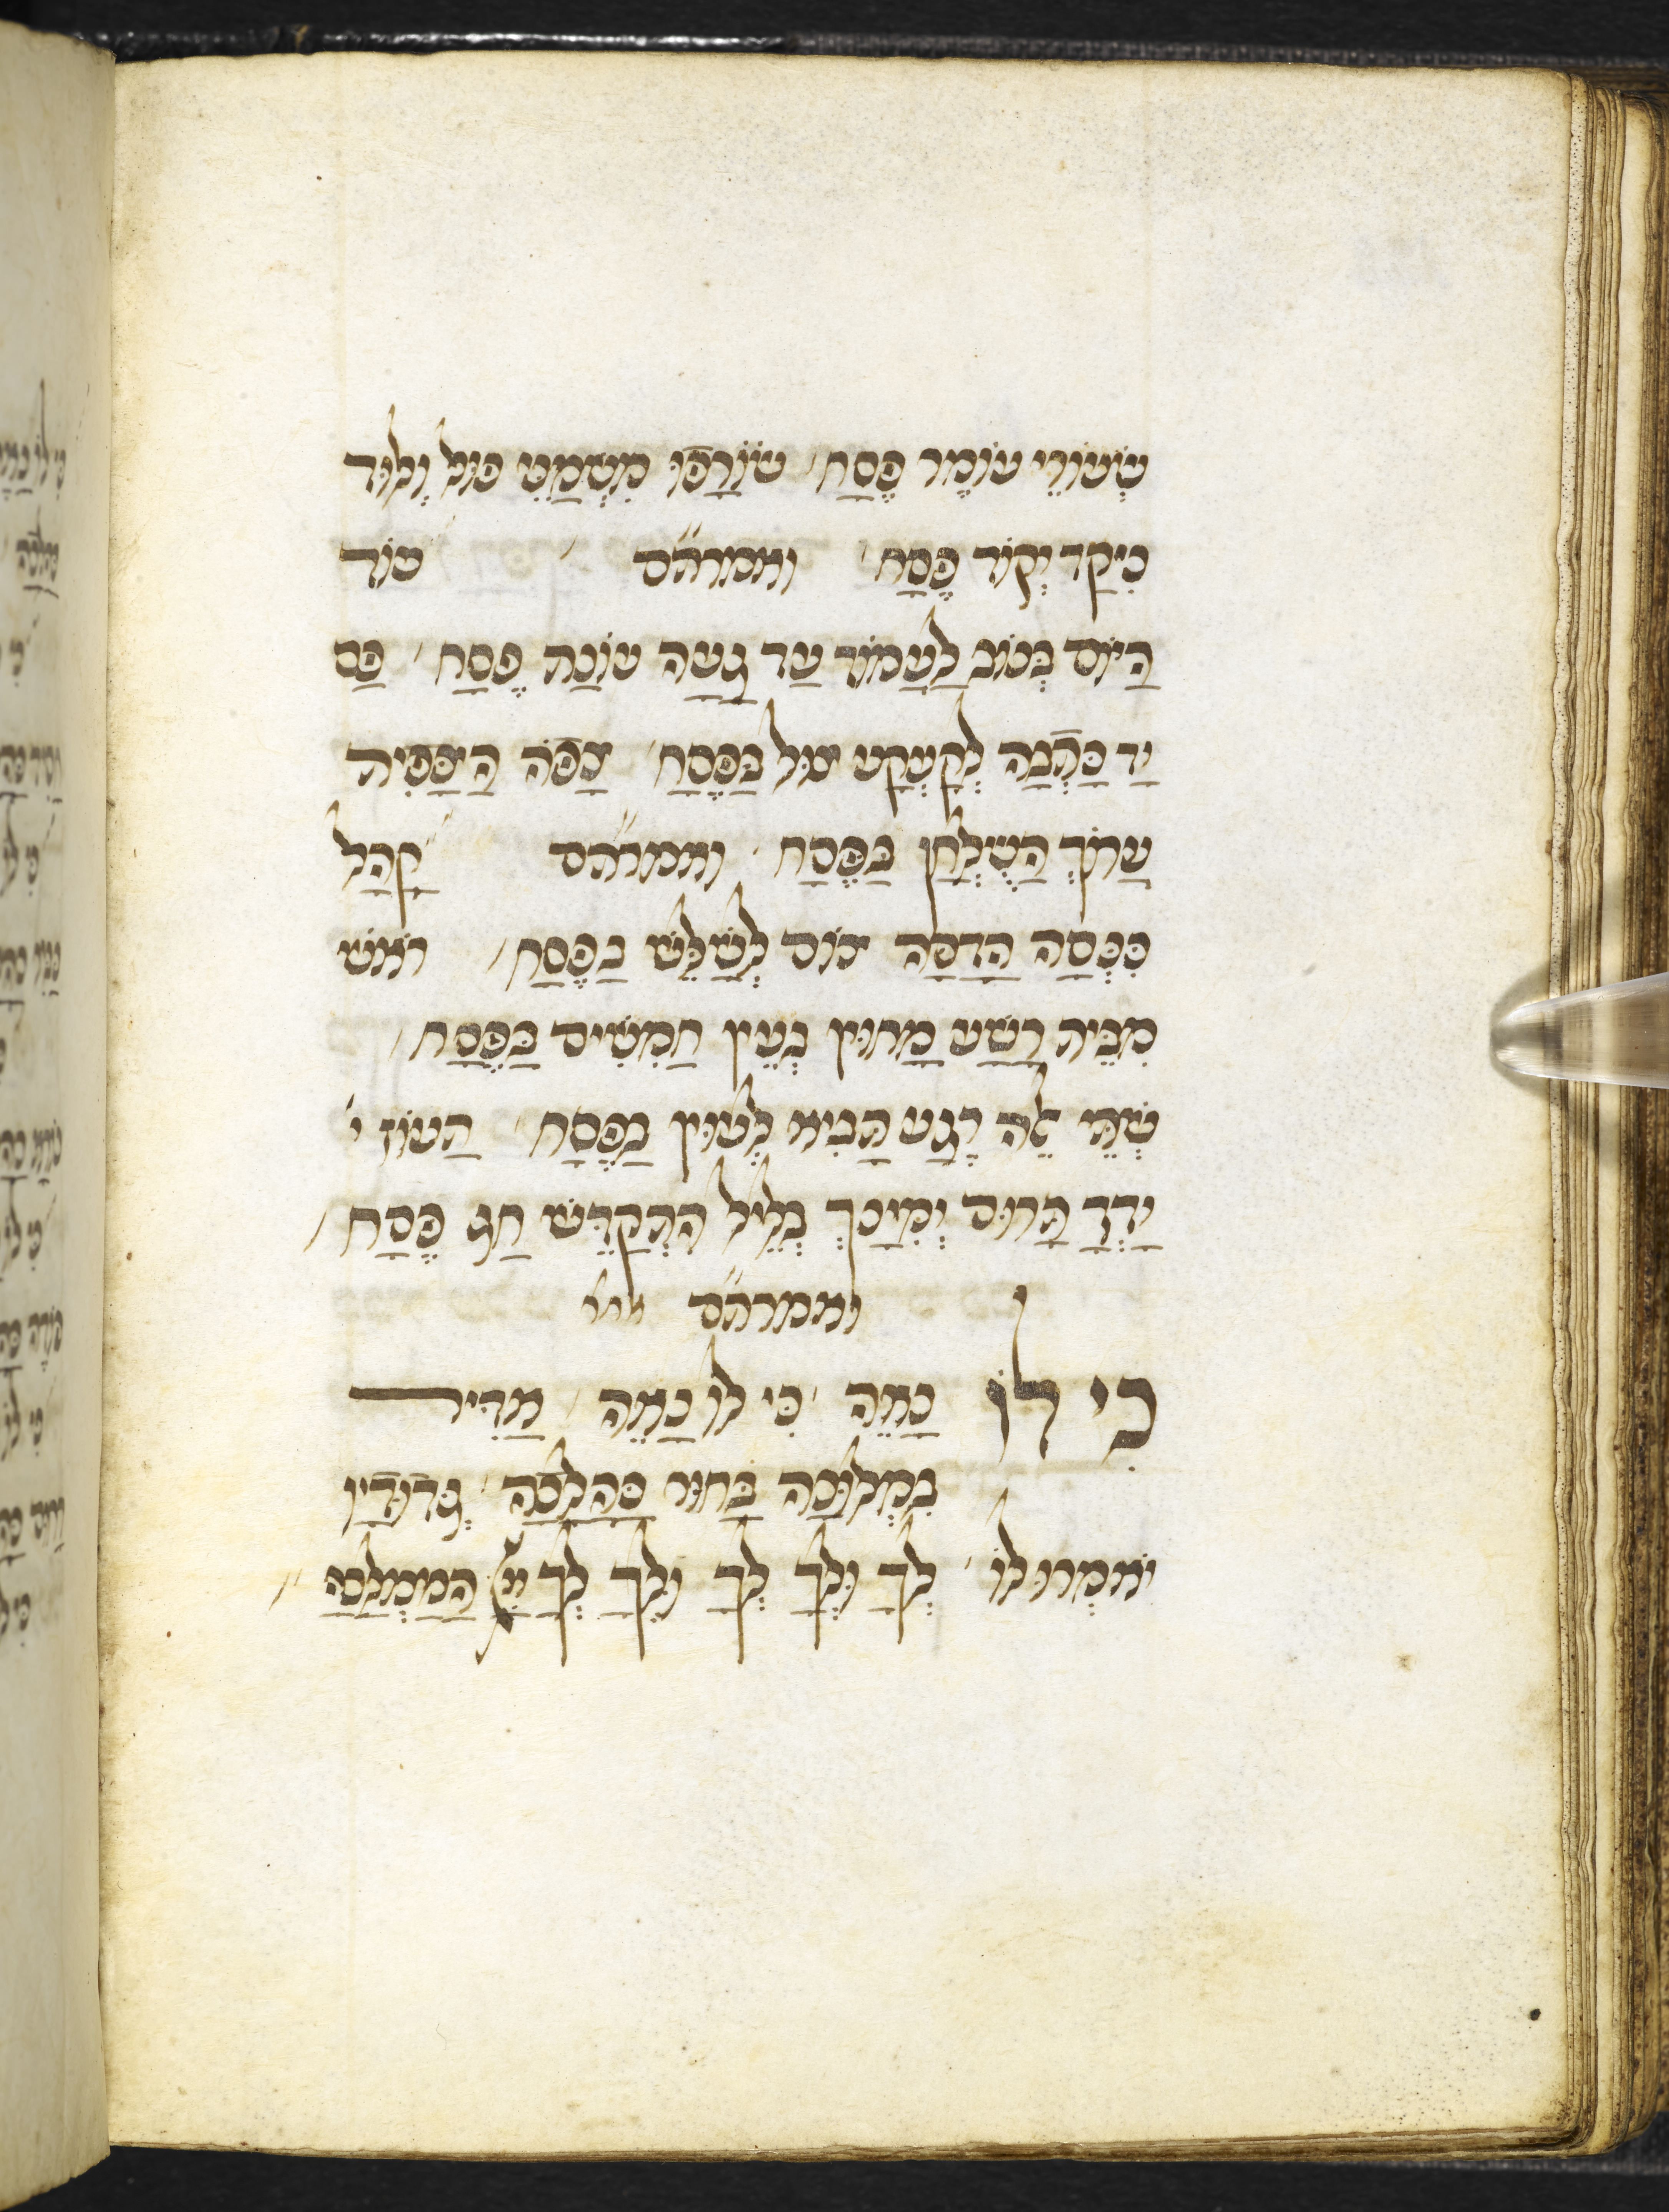 שְׂעוֹרֵי עוֹמֶר פֶּסַח׳ שׂוֹרְפוּ מִשְׁמַנֵּי פוּל וְלוּד
כִּיקַד יְקוֹד פֶּסַח׳ ואמרתם ׳ עוֹד
הַיּוֹם בְּנוֹב לַעֲמוֹד עַד גָּעָה עוֹנַת פֶּסַח׳ פַּס
יַד כָּתְבָה לְקַעֲקֵעַ צוּל בַּפֶּסַח׳ צָפֹה הַצָּפִית
עָרוֹךְ הַשֻּׁלְחָן בַּפֶּסַח׳ ואמרתם ׳ קָהָל
כִּנְּסָה הֲדַסָּה צוֹם לְשַׁלֵּשׁ בַּפֶּסַח׳ רֹאשׁ
מִבֵּית רָשָׁע מָחוּץ בְּעֵץ חֲמִשִּׁים בַּפֶּסַח׳
שְׁתֵּי אֵלֶּה רֶגַע תָּבִיא לְעוּץ בַּפֶּסַח׳ תָּעוֹז י׳
יָדְךָ תָּרוּם יְמִינְךָ בְּלֵיל הִתְקַדֵּשׁ חַג פֶּסַח׳
ואמרתם וגו׳
כִּי לוֹ נָאֶה׳ כִּי לוֹ יָאֶה׳ אַדִּיר
בִּמְלוּכָה בָּחוּר כַּהֲלָכָה׳ גְּדוּדָיו
יֹאמְרוּ לוֹ׳ לְךָ וּלְךָ לְךָ וּלְךָ לְךָ יְיָ הַמַּמְלָכָה׳׳